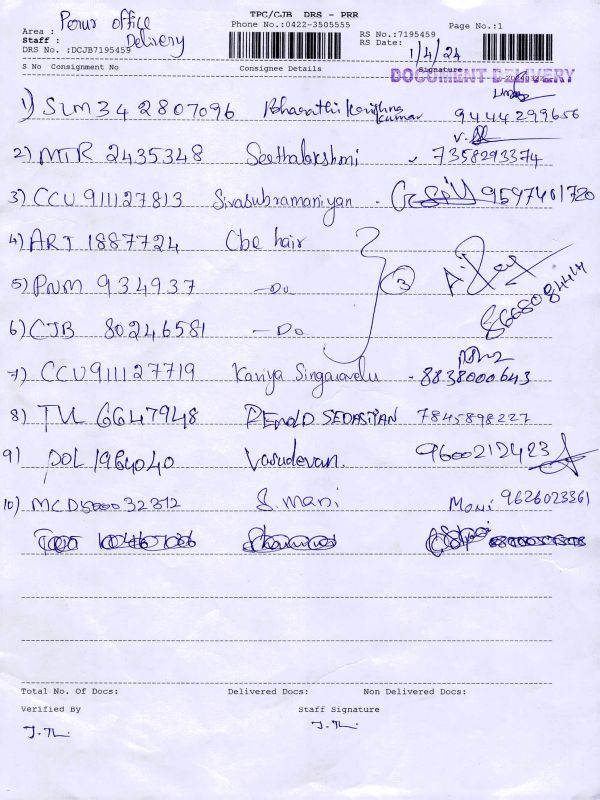 TPC/CJB DRS - PRR
Perur office
Phone No.:0422-3505555
Page No.:1
Area :
RS No.:7195459
Staff :
Delivery
RS Date:
1/4/24
DRS No. :DCJB7195459
DOCUMENT DELIVERY
S No Consignment No Consignee Details Signature
1) SLM342807096 Bharathi Krishna kumar 9444299656
2) MTR 2435348 Seethalakshmi 7358293374
3) CCU911127813 Sivasubramaniyan 9597401720
4) ART 1887724 Cbe hair
5) PNM 934937 - Do 3
8668084414
6) CJB 80246581 - Do
7) CCU911127719 Kaviya Singaravelu - 8838000643
8) TVL 6647948 RENOLD SEBASTIAN 7845898227
9) POL 1964040 Vasudevan. 9600212423
10) MCD500032312 S. mani Mani 9626023361
Total No. Of Docs: Delivered Docs: Non Delivered Docs:
Verified By Staff Signature